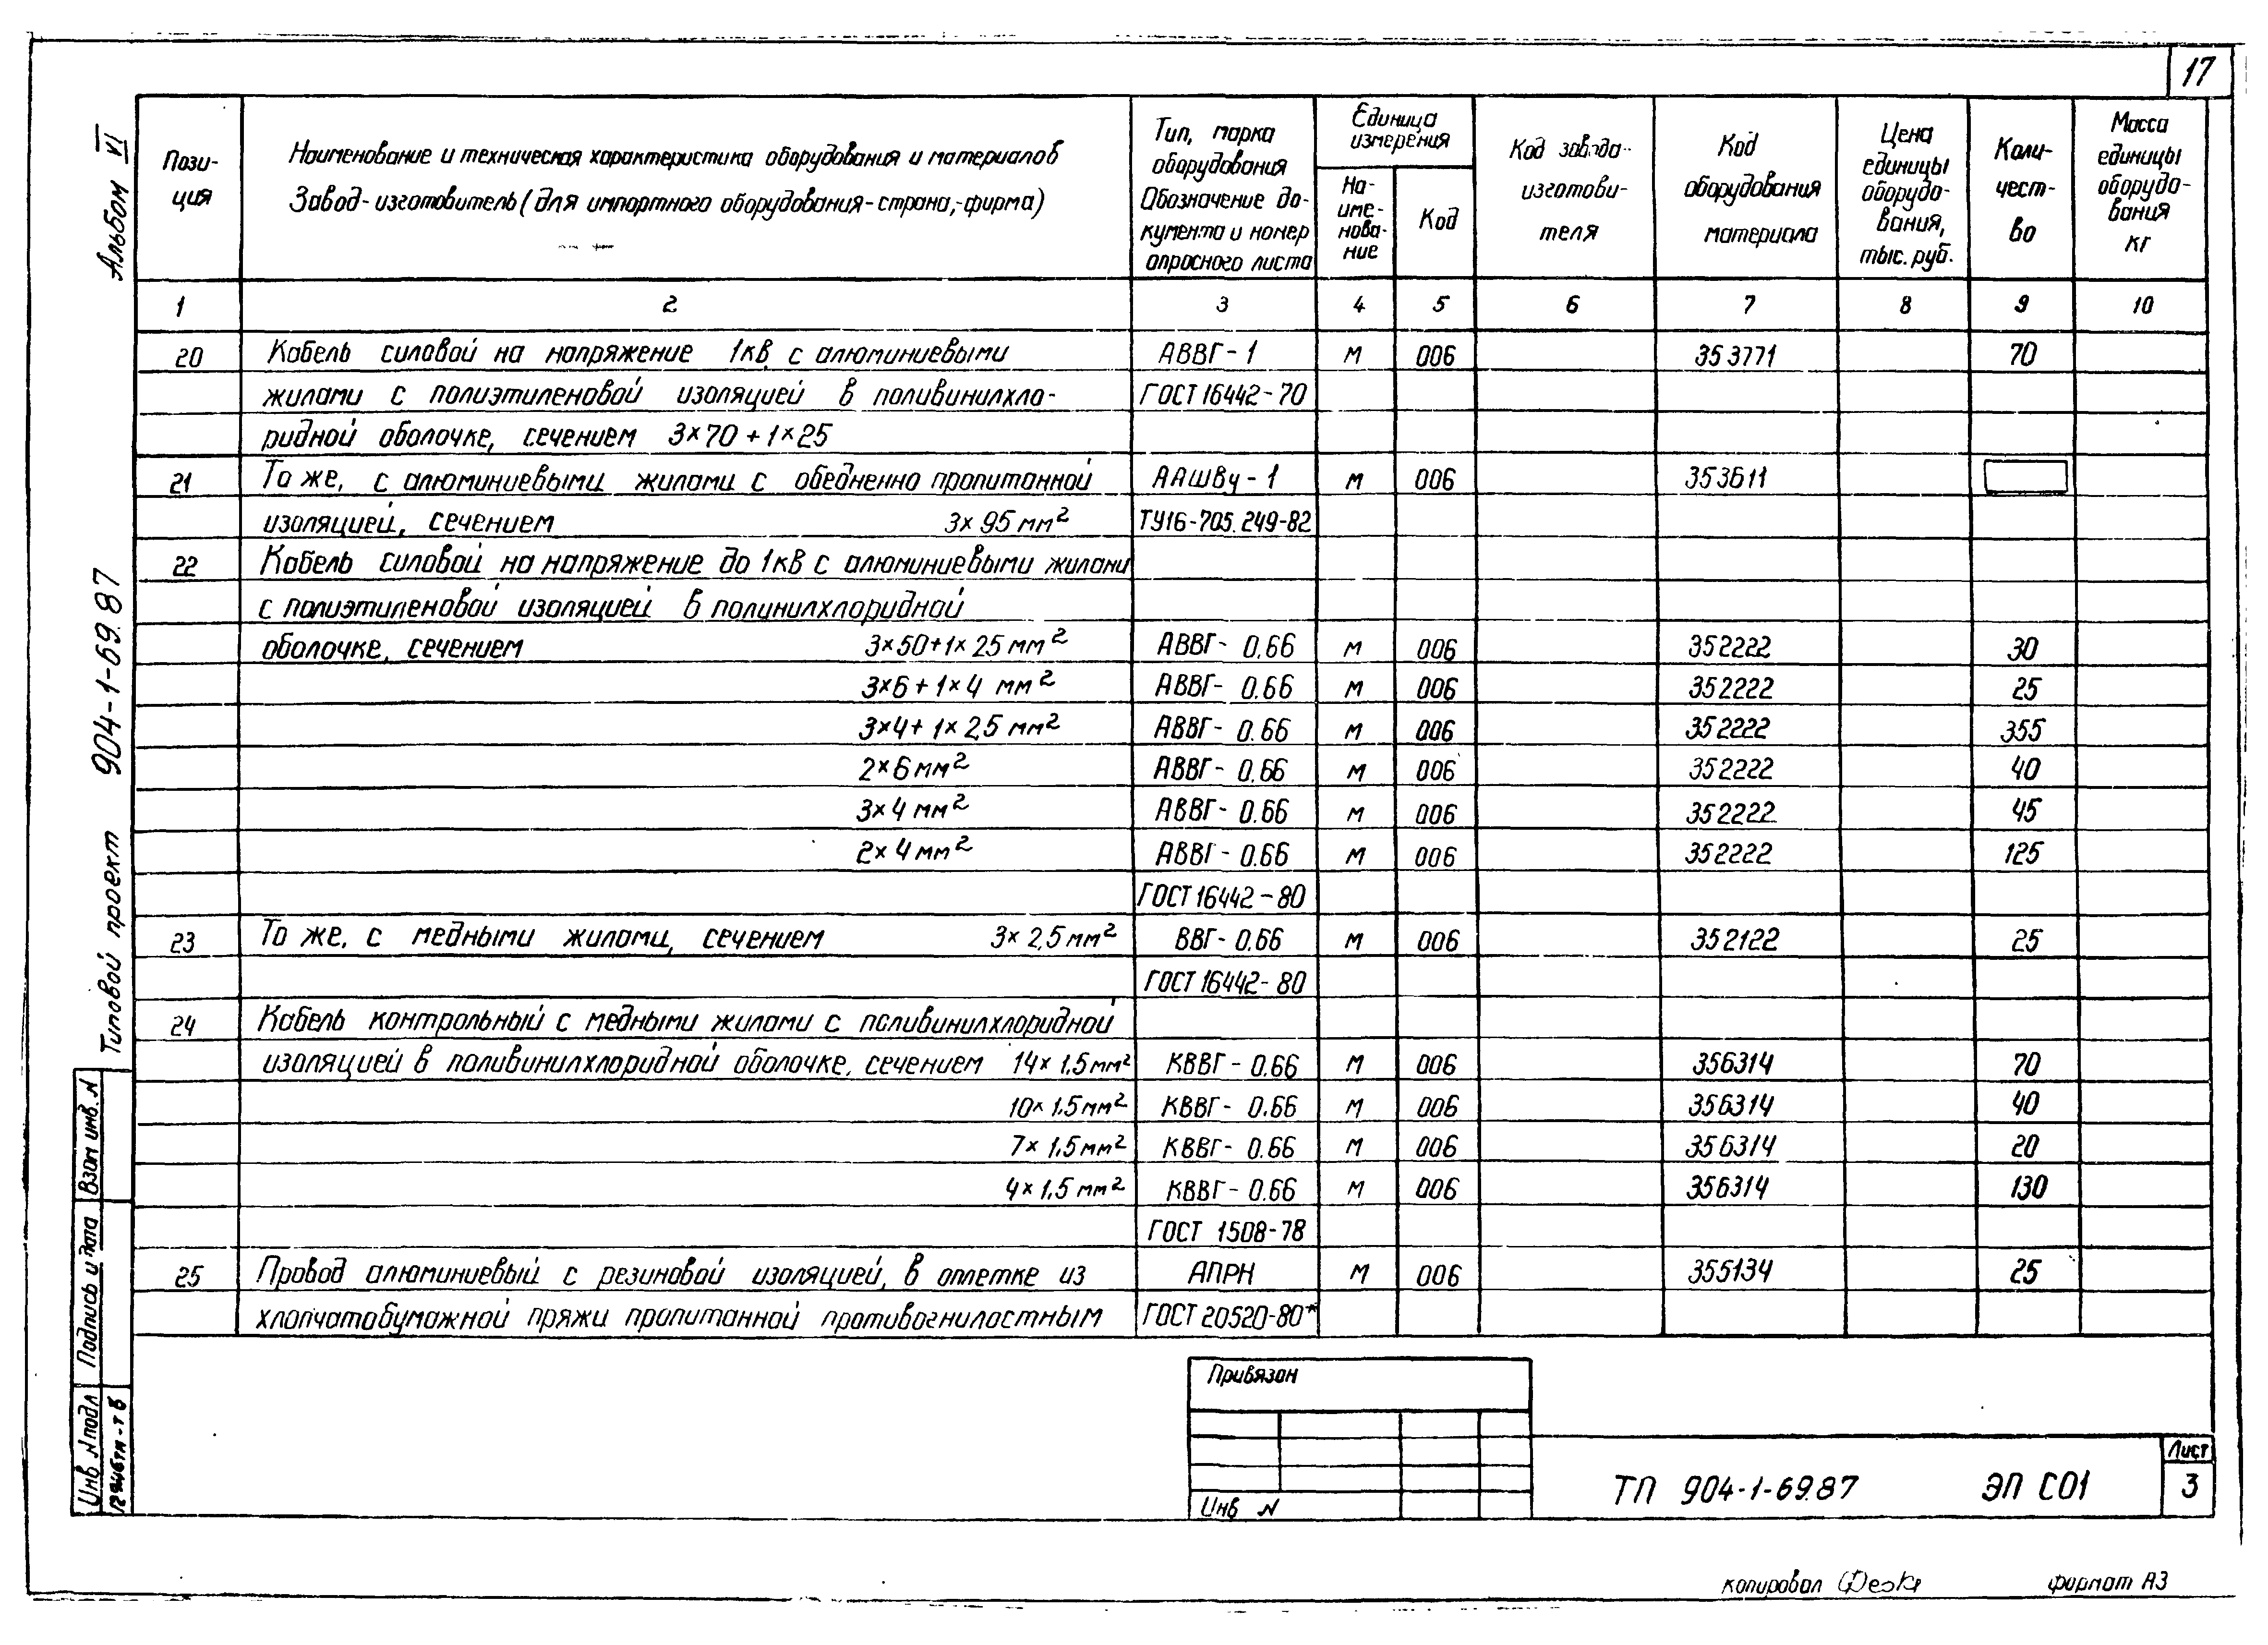 17
Альбом VI
Типовой проект 904-1-69.87
Взам инв. N
Подпись и дата
Инв. N подл
Пози-
ция
Наименование и техническая характеристика оборудования и материалов
Завод-изготовитель (для импортного оборудования-страна,-фирма)
Тип, марка
оборудования
Обозначение до-
кумента и номер
опросного листа
Единица
измерения
На-
име-
нова-
ние
Код
Код завода-
изготови-
теля
Код
оборудования
материала
Цена
единицы
оборудо-
вания,
тыс. руб.
Коли-
чест-
во
Масса
единицы
оборудо-
вания
кг
1 2 3 4 5 6 7 8 9 10
20 Кабель силовой на напряжение 1кв, с алюминиевыми АВВГ-1 м 006 353771 70
жилами с полиэтиленовой изоляцией в поливинилхло- ГОСТ 16442-70
ридной оболочке, сечением 3×70+1×25
21 То же, с алюминиевыми жилами с обедненно пропитанной ААШВу-1 м 006 353611
изоляцией, сечением 3×95 мм² ТУ16-705.249-82
22 Кабель силовой на напряжение до 1кВ с алюминиевыми жилами
с полиэтиленовой изоляцией в полинилхлоридной
оболочке, сечением 3×50+1×25 мм² АВВГ-0.66 м 006 352222 30
3×6+1×4 мм² АВВГ-0.66 м 006 352222 25
3×4+1×2,5 мм² АВВГ-0.66 м 006 352222 355
2×6 мм² АВВГ-0.66 м 006 352222 40
3×4 мм² АВВГ-0.66 м 006 352222 45
2×4 мм² АВВГ-0.66 м 006 352222 125
ГОСТ 16442-80
23 То же, с медными жилами, сечением 3×2,5 мм² ВВГ-0.66 м 006 352122 25
ГОСТ 16442-80
24 Кабель контрольный с медными жилами с поливинилхлоридной
изоляцией в поливинилхлоридной оболочке, сечением 14×1,5 мм² КВВГ-0.66 м 006 356314 70
10×1,5 мм² КВВГ-0.66 м 006 356314 40
7×1,5 мм² КВВГ-0.66 м 006 356314 20
4×1,5 мм² КВВГ-0.66 м 006 356314 130
ГОСТ 1508-78
25 Провод алюминиевый с резиновой изоляцией, в оплетке из АПРН м 006 355134 25
хлопчатобумажной пряжи пропитанной противогнилостным ГОСТ 20520-80*
Привязан
Инв N
ТП 904-1-69.87 ЭП СО1
Лист
3
копировал
формат А3